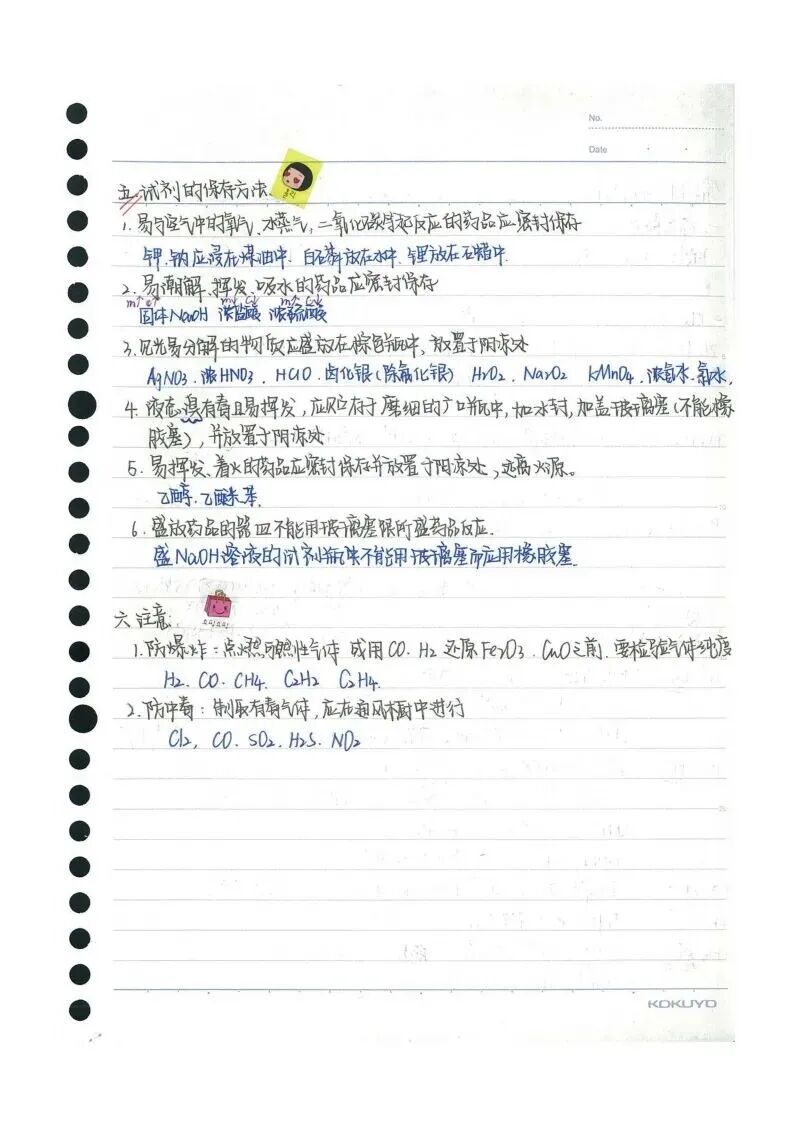 No.
Date
五.试剂的保存方法.
1.易与空气中的氧气、水蒸气,二氧化碳等起反应的药品应密封保存
钾.钠应浸在煤油中.白磷放在水中.锂放在石蜡中.
2.易潮解、挥发、吸水的药品应密封保存
m↑ c↑ m↓ c↓ m↑ c↓
固体NaOH 浓盐酸 浓硫酸
3.见光易分解的物质应盛放在棕色瓶中,放置于阴凉处
AgNO3.浓HNO3.HClO.卤化银(除氟化银) H2O2.Na2O2 KMnO4.浓氨水.氯水,
4.液态溴有毒且易挥发,应贮存于磨细的广口瓶中,加水封,加盖玻璃塞(不能橡
胶塞),并放置于阴凉处
5.易挥发、着火的药品应密封保存并放置于阴凉处,远离火源。
乙醇.乙醚.苯.
6.盛放药品的器皿不能用玻璃塞跟所盛药品反应.
盛NaOH溶液的试剂瓶不能用玻璃塞而应用橡胶塞.
六.注意.
1.防爆炸:点燃可燃性气体 或用CO.H2还原Fe2O3.CuO之前.要检验气体纯度
H2.CO.CH4.C2H2 C2H4.
2.防中毒:制取有毒气体,应在通风橱中进行
Cl2,CO.SO2.H2S.NO2
KOKUYO